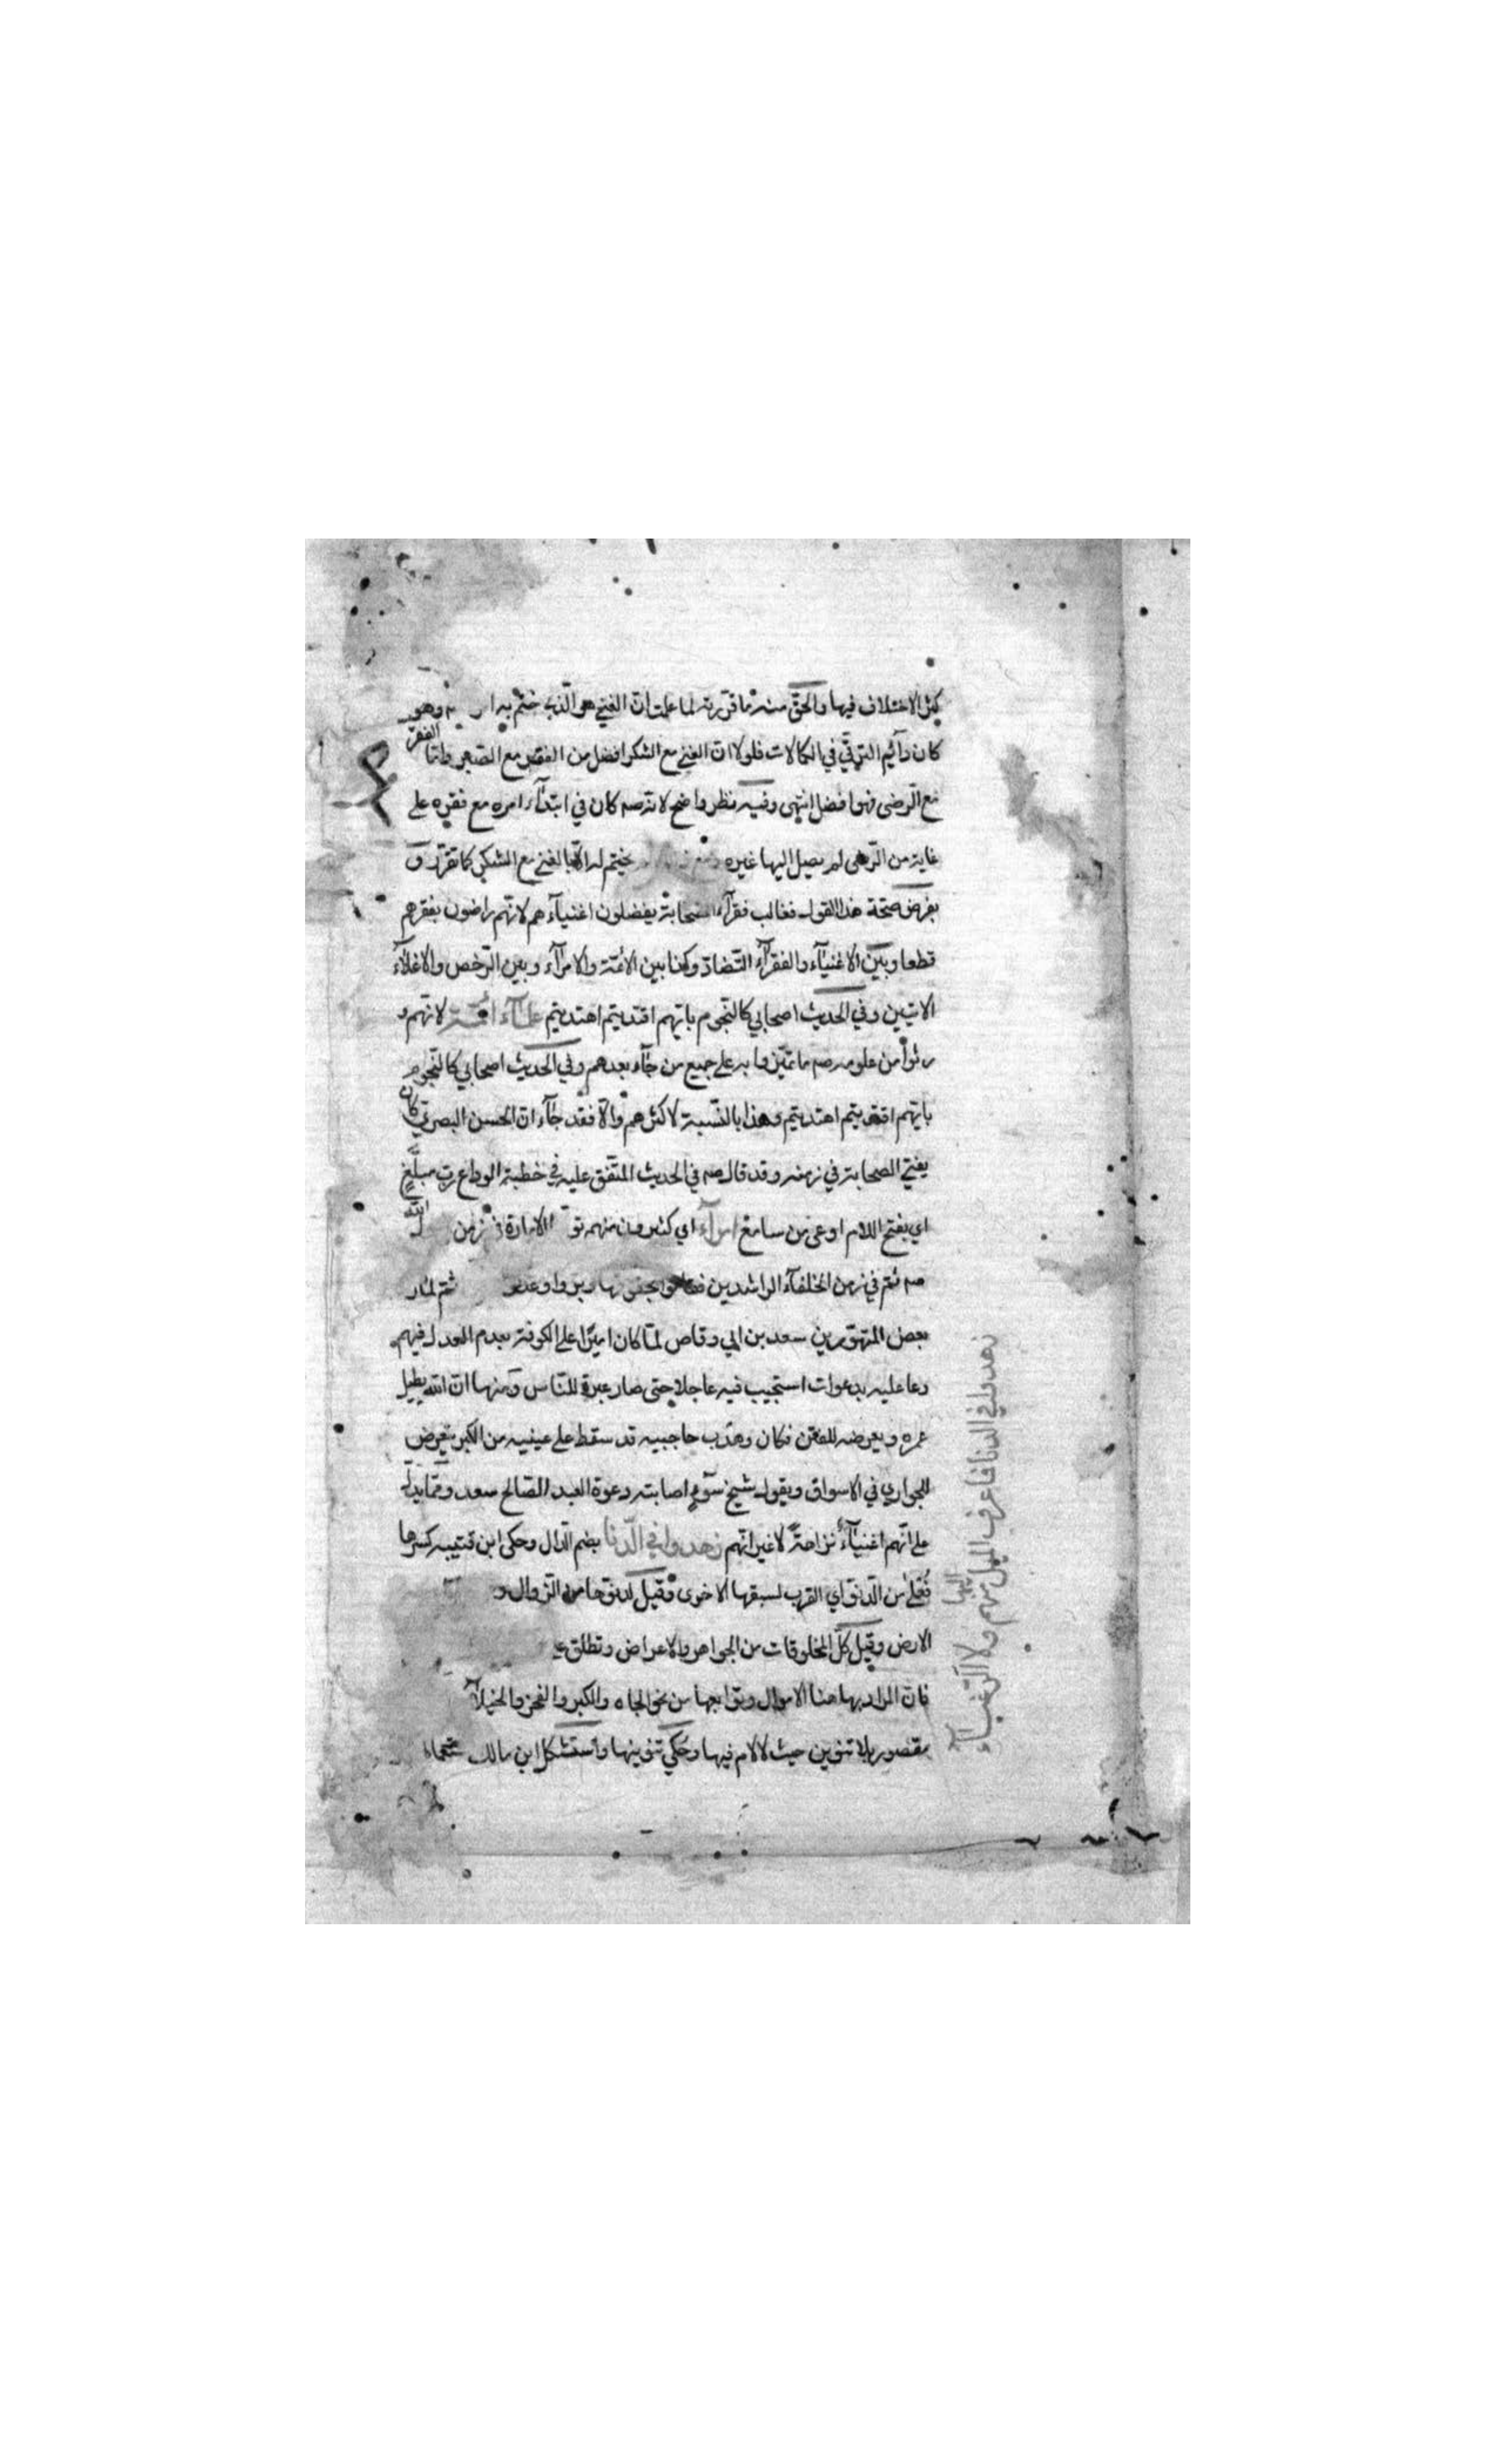 كثر الاختلاف فيها والحق منه ما قررته لما علمت ان الغني هو الذي ختم به وهو
كان دآئيم الترقّي في الكمالات فلولا ان الغني مع الشكر افضل من الفقر مع الصبر واما الفقر
مع الرضى فهو افضل انتهى وفيه نظر واضح لانه صم كان في ابتدآء امره مع فقره على
غاية من الرضى لم يصل اليها غيره يختم له الا بالغني مع الشكر كما تقرر و
بفرض صحة هذا القول فغالب فقرآء الصحابة يفضلون اغنيآءهم لانهم راضون بفقرهم
قطعا وبين الاغنيآء والفقرآء التضاد وكذا بين الائمة والامرآء وبين الرخص والاغلآء
الاتيين وفي الحديث اصحابي كالنجوم بايهم اقتديتم اهتديتم علمآء ائمة لانهم و
رثوا من علومه صم ما تميزوا به على جميع من جآء بعدهم وفي الحديث اصحابي كالنجوم
بايهم اقتديتم اهتديتم وهذا بالنسبة لاكثرهم والا فقد جآء ان الحسن البصري كان
يفتي الصحابة في زمنه وقد قال صم في الحديث المتفق عليه في خطبة الوداع رب مبلّغ
اي بفتح اللام اوعى من سامع امرآء اي كثيرون منهم الامارة في زمن الله
صم ثم في زمن الخلفآء الراشدين بحقوقها وبروا وعدلوا ثم لما
بعض المتهورين سعد بن ابي وقاص لما كان اميرا على الكوفة بعدم العدل فيهم
دعا عليه بدعوات استجيب فيه عاجلا حتى صار عبرة للناس ومنها ان الله يطيل
عمره ويعرضه للفتن فكان وهدب حاجبيه قد سقط على عينيه من الكبر يتعرض
للجواري في الاسواق ويقول شيخ سوء اصابته دعوة العبد الصالح سعد ومما يدل
على انهم اغنيآء نزاهة لا غير انهم زهدوا في الدنا بضم الدال وحكى ابن قتيبه كسرها
فُعْلى من الدنو اي القرب لسبقها الاخرى وقيل لدنوها من الزوال و
الارض وقيل كل المخلوقات من الجواهر والاعراض وتطلق
فان المراد بها هنا الاموال وتوابعها من نحو الجاه والكبر والفخر والخيلآء
مقصور بلا تنوين حيث لا لام فيها وحكي تنوينها واستشكل ابن مالك
زهدوا في الدنا فما عرف الميل اليها منهم ولا الرغبآء